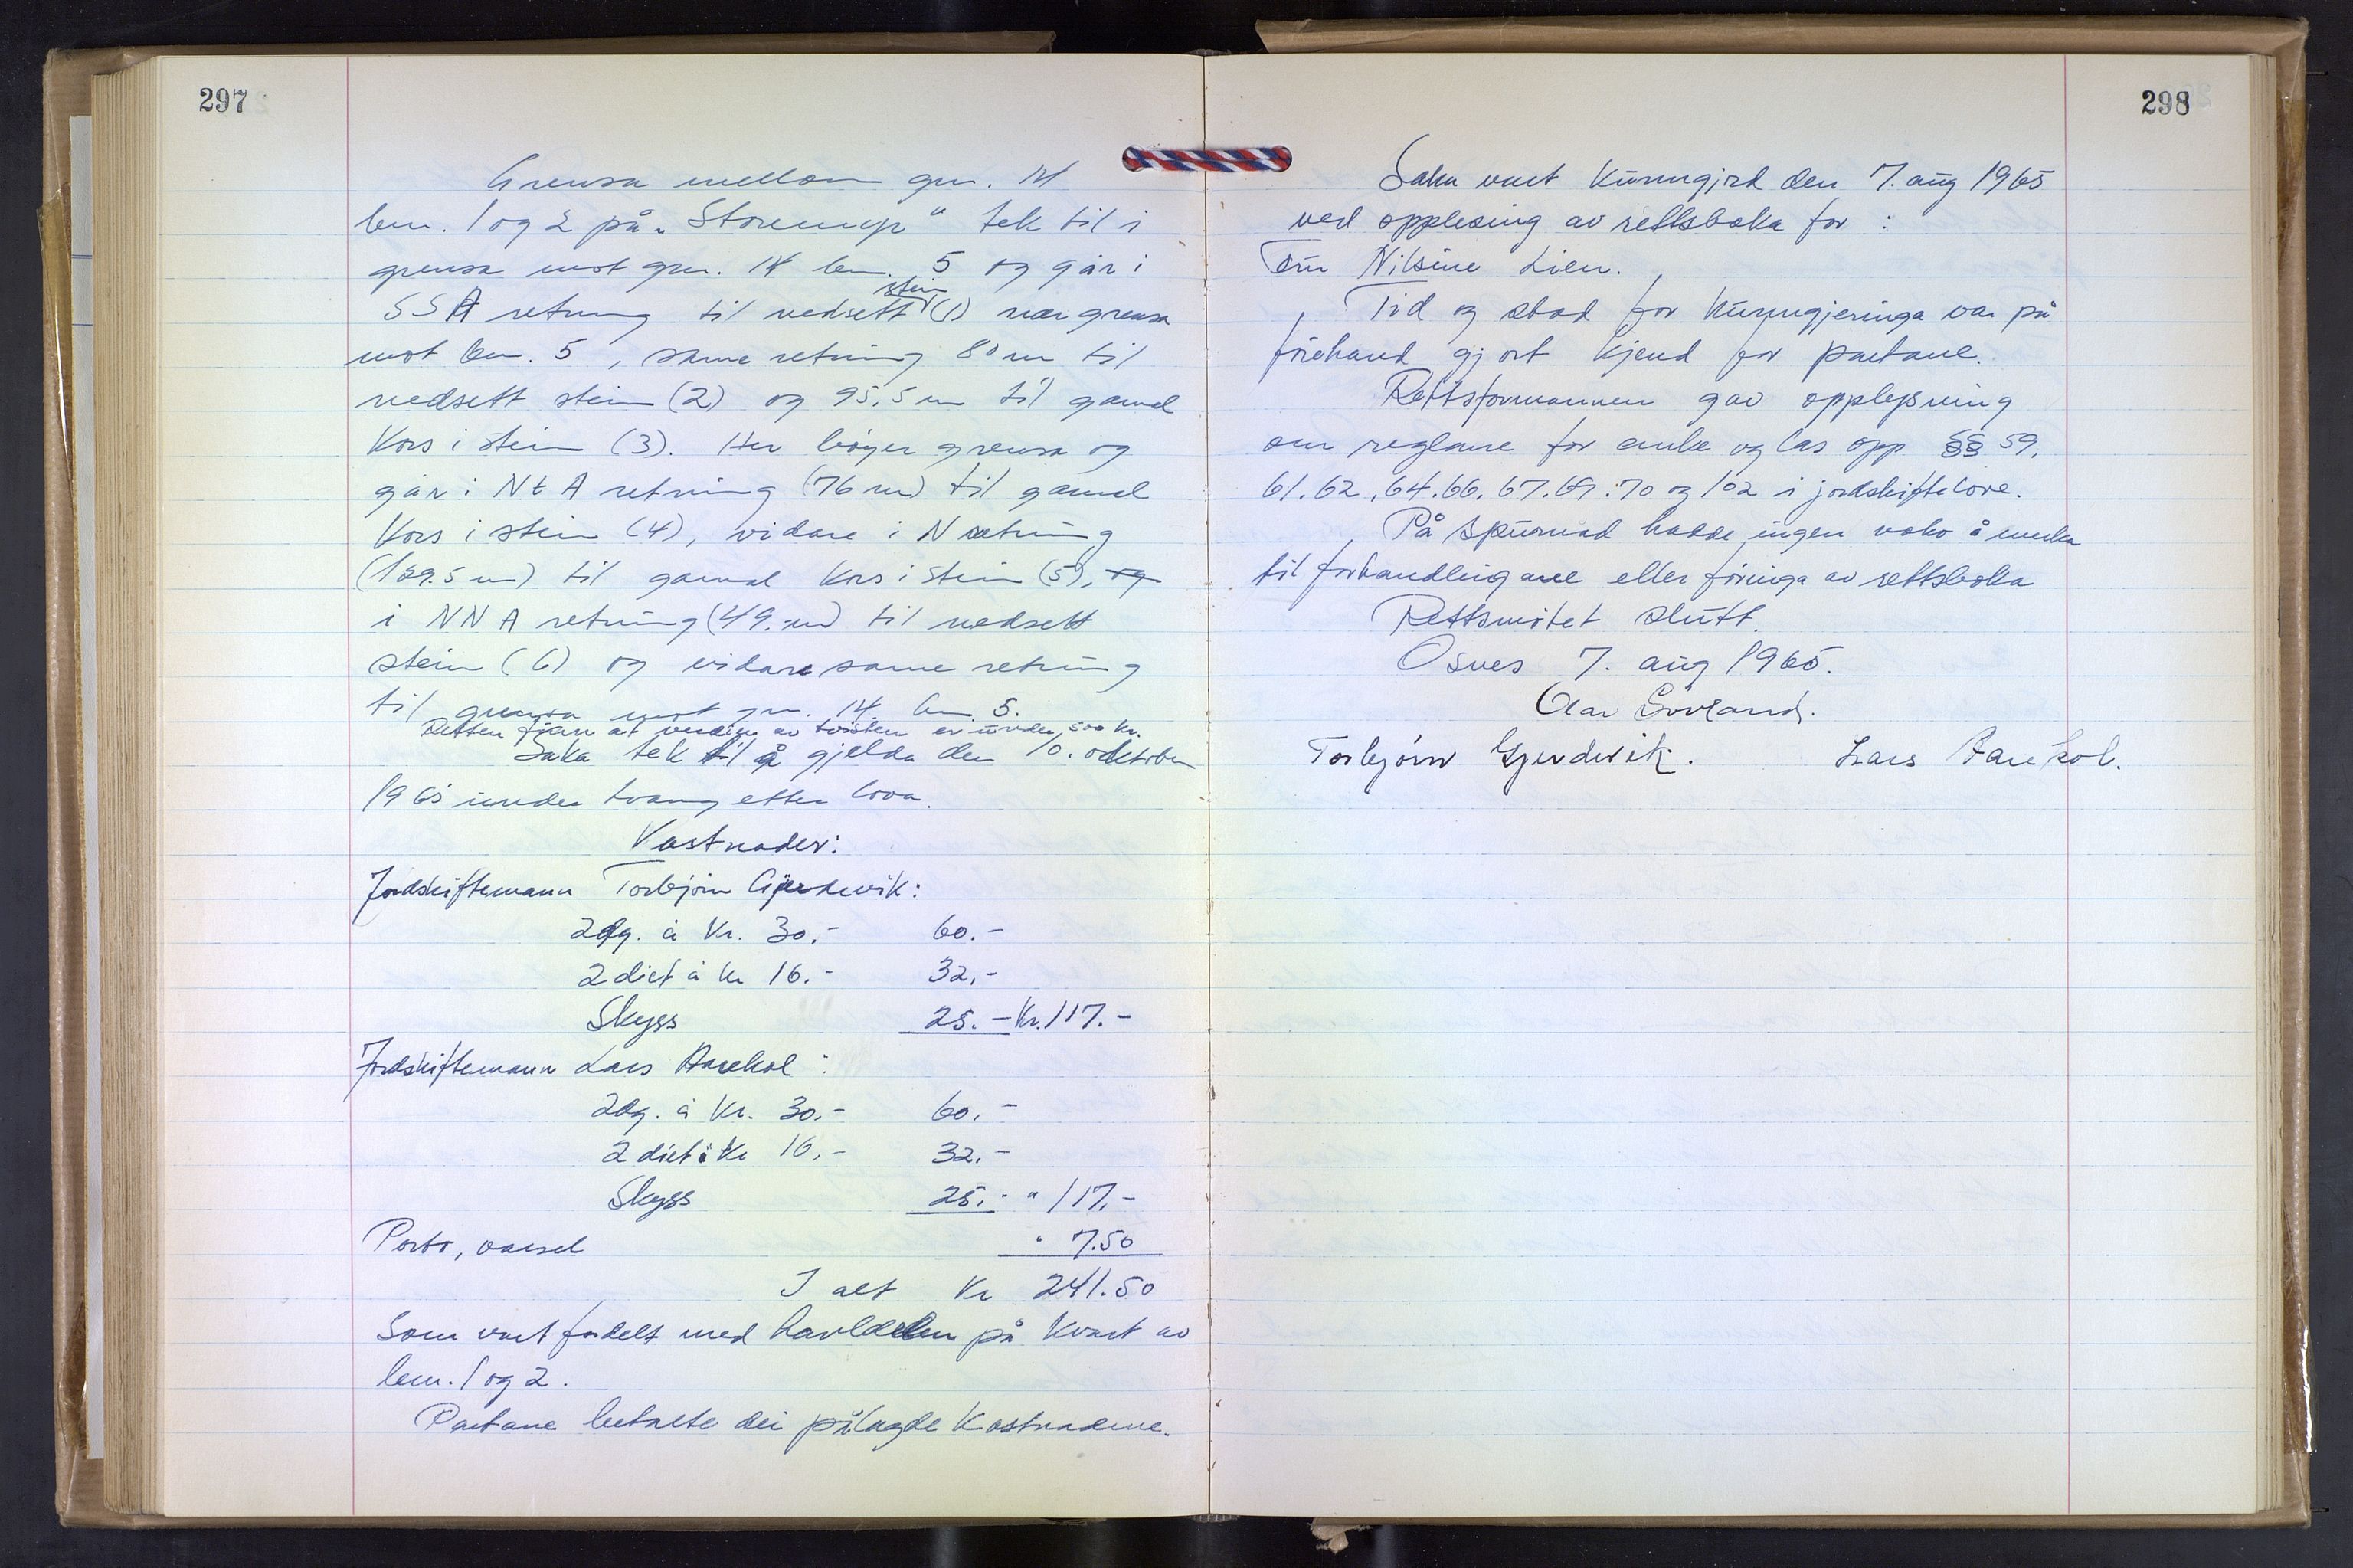 297
Grensa mellom gnr. 14
bnr. 1 og 2 på "Storemyr" tek til i
grensa mot gnr. 14 bnr. 5 og går i
SSA retning til nedsett stein (1) nær grensa
mot bnr. 5, same retning 80 m til
nedsett stein (2) og 95.5 m til gamal
Kors i stein (3). Her bøyer grensa og
går i NtA retning (76 m) til gamal
Kors i stein (4), vidare i N retning
(129.5 m) til gamal Kors i stein (5), og
i NNA retning (49. m) til nedsett
stein (6) og vidare same retning
til grensa mot gnr. 14 bnr. 5.
Retten finn at verdien av tvisten er under 500 kr.
Saka tek til å gjelda den 10. oktober
1965 under tvang etter lova.
Kostnader:
Jordskiftemann Torbjørn Gjerdevik:
2 dg. à Kr. 30.- 60.-
2 diet à kr 16.- 32.-
Skyss 25.- Kr. 117.-
Jordskiftemann Lars Aarekol:
2 dg. à Kr. 30.- 60.-
2 diet à Kr 16.- 32.-
Skyss 25.- " 117.-
Porto, varsel " 7.50
I alt Kr 241.50
Som vart fordelt med halvdelen på kvart av
bnr. 1 og 2.
Partane betalte dei pålagde Kostnadene.
298
Saka vart Kunngjord den 7. aug 1965
ved opplesing av rettsboka for :
Fru Nilsine Lien.
Tid og stad for Kunngjeringa var på
førehand gjort kjend for partane.
Rettsformannen gav opplysning
om reglane for anke og las opp §§ 59.
61. 62. 64. 66. 67. 69. 70 og 102 i jordskiftelova.
På spurnad hadde ingen noko å merka
til forhandlingane eller føringa av rettsboka
Rettsmøtet slutt.
Osnes 7. aug 1965.
Sørland.
Torbjørn Gjerdevik. Lars Aarekol.